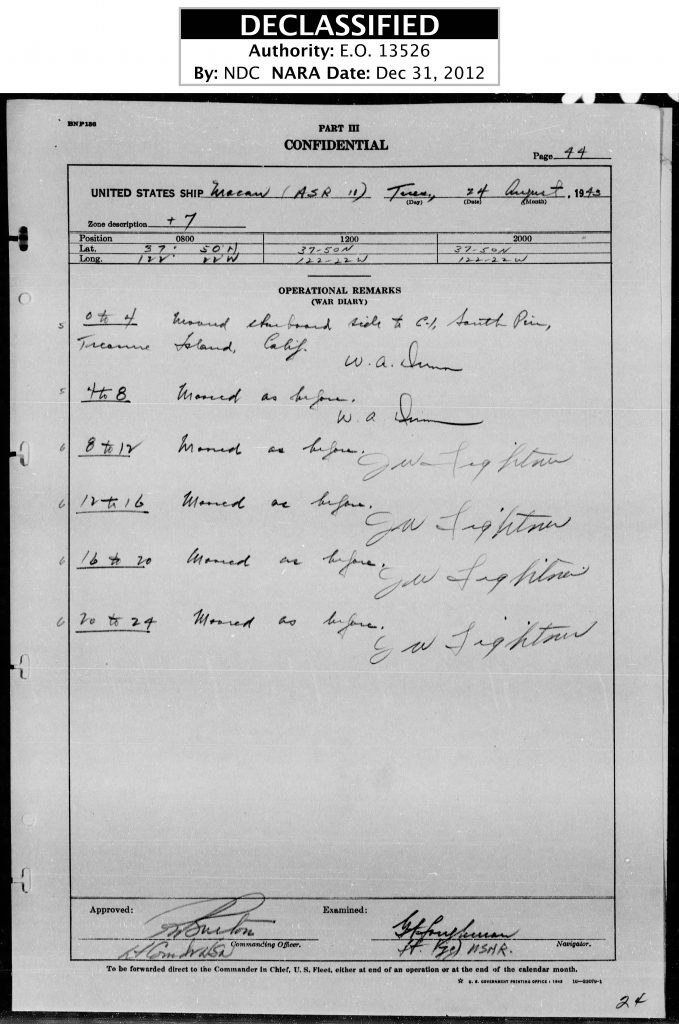 DECLASSIFIED
Authority: E.O. 13526
By: NDC NARA Date: Dec 31, 2012
BNP136
PART III
CONFIDENTIAL
Page 44
UNITED STATES SHIP Macaw (ASR 11) Tues, 24 August, 1943
(Day) (Date) (Month)
Zone description +7
Position 0800 1200 2000
Lat. 37° 50'N 37-50N 37-50N
Long. 122° 22'W 122-22W 122-22W
OPERATIONAL REMARKS
(WAR DIARY)
5 0 to 4 Moored starboard side to South Pier,
Treasure Island, Calif.
W. A. Dunn
5 4 to 8 Moored as before.
W. A. Dunn
6 8 to 12 Moored as before.
J W Lightner
6 12 to 16 Moored as before.
J W Lightner
6 16 to 20 Moored as before.
J W Lightner
6 20 to 24 Moored as before.
J W Lightner
Approved: Examined:
Burton
Lt Comdr USN Commanding Officer. Lt. (jg) USNR. Navigator.
To be forwarded direct to the Commander in Chief, U. S. Fleet, either at end of an operation or at the end of the calendar month.
☆ U. S. GOVERNMENT PRINTING OFFICE : 1942
24